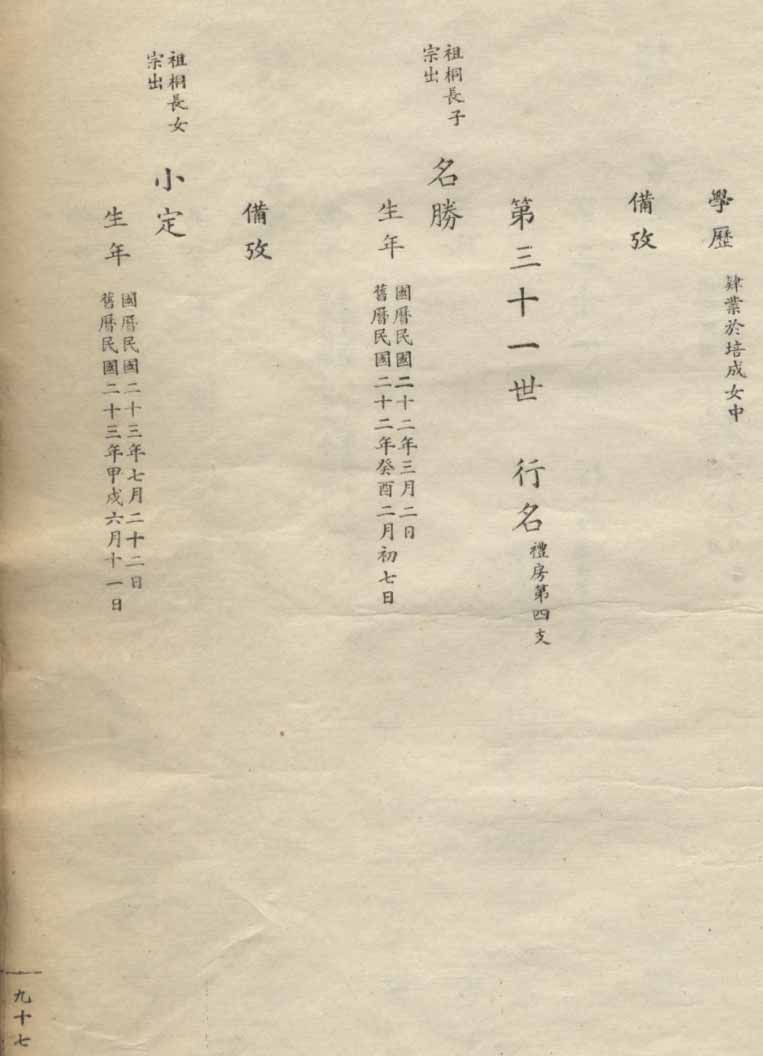 學歷
肄業於培成女中
備攷
第三十一世 行名
禮房第四支
祖桐長子
宗出
名勝
生年
國曆民國二十二年三月二日
舊曆民國二十二年癸酉二月初七日
備攷
祖桐長女
宗出
小定
生年
國曆民國二十三年七月二十二日
舊曆民國二十三年甲戌六月十一日
九十七